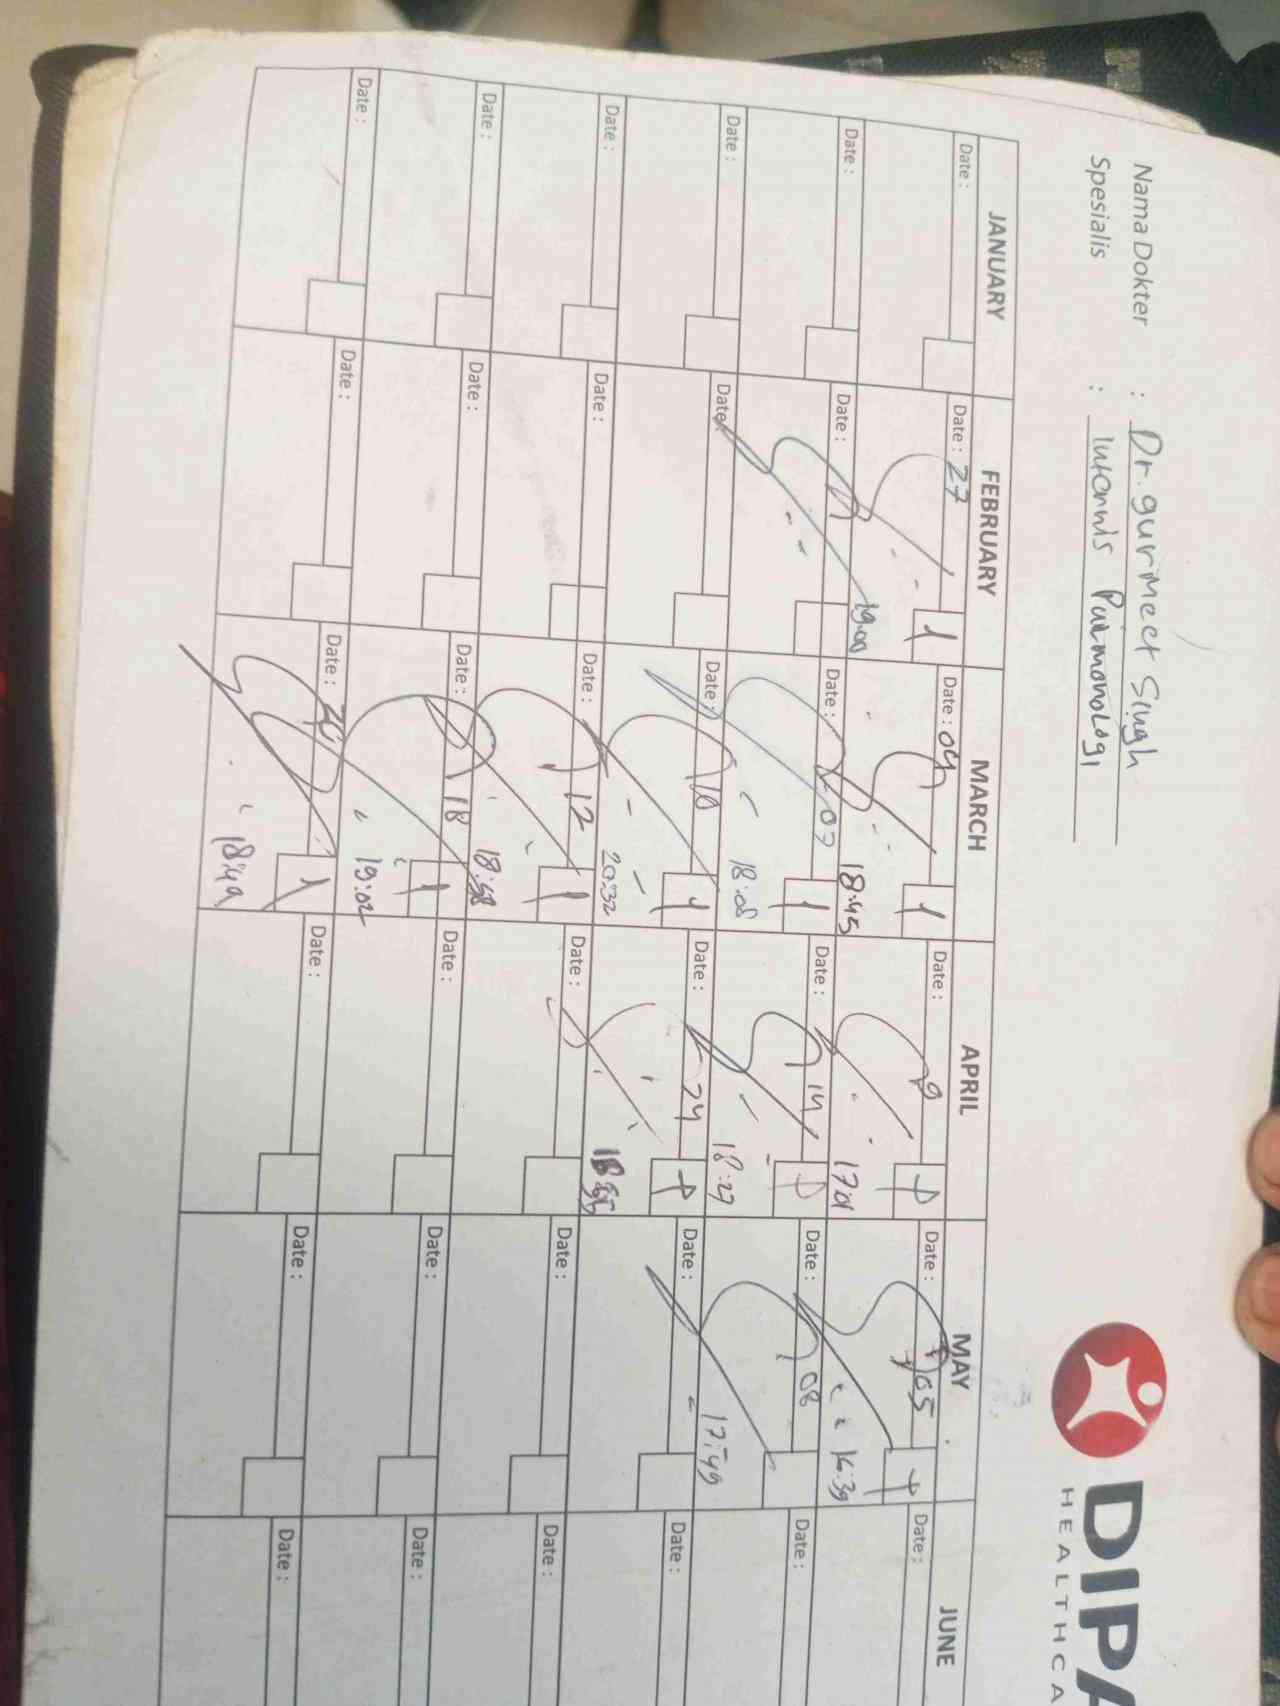 Nama Dokter : Dr. gurmeet Singh
Spesialis : Internis Pulmonologi
DIPA
HEALTHCA
JANUARY FEBRUARY MARCH APRIL MAY JUNE
Date : Date : 27 Date : 04 Date : 9 Date : 05 Date :
1 1
19.00 18:45 17:01 16:39
Date : Date : Date : 07 Date : 14 Date : 08 Date :
1
18:08 18:27 17:49
Date : Date : Date : 10 Date : 24 Date : Date :
1
20:32
Date : Date : Date : 12 Date : Date : Date :
1
18:58
Date : Date : Date : 18 Date : Date : Date :
1
19:02
Date : Date : Date : Date : Date : Date :
1
18:49